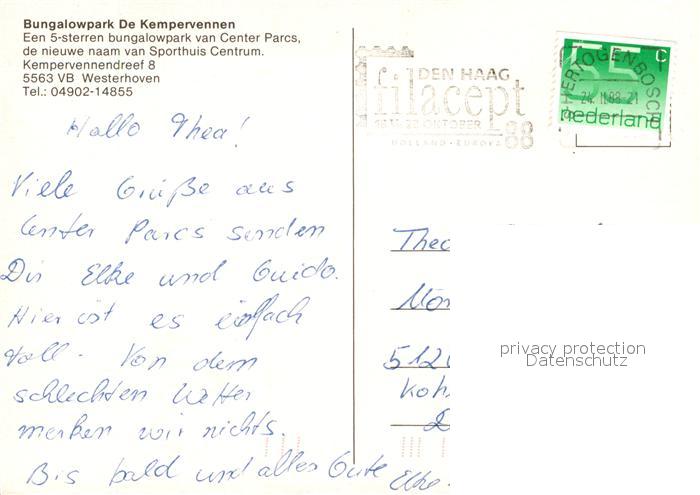 Bungalowpark De Kempervennen
Een 5-sterren bungalowpark van Center Parcs,
de nieuwe naam van Sporthuis Centrum.
Kempervennendreef 8
5563 VB Westerhoven
Tel.: 04902-14855
DEN HAAG
filacept
18 23 OKTOBER 88
HOLLAND-EUROPA
55 c
nederland
'S HERTOGENBOSCH
24.II.88-21
Hallo Thea!
Viele Grüße aus
Center Parcs senden
Dir Elke und Guido.
Hier ist es einfach
toll. Von dem
schlechten Wetter
merken wir nichts.
Bis bald und alles Gute
Elke.
Thea
512
privacy protection
Datenschutz